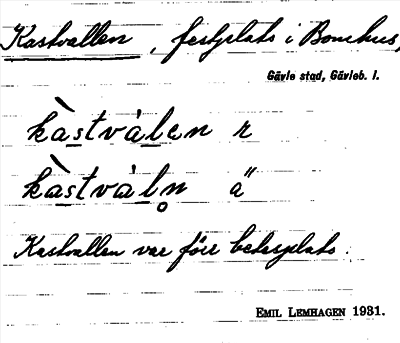 Kastvallen, festplats i Bomhus,
Gävle stad, Gävleb. l.
kàstvàlen r
kàstvàln̥ ä
Kastvallen var förr betesplats.
EMIL LEMHAGEN 1931.